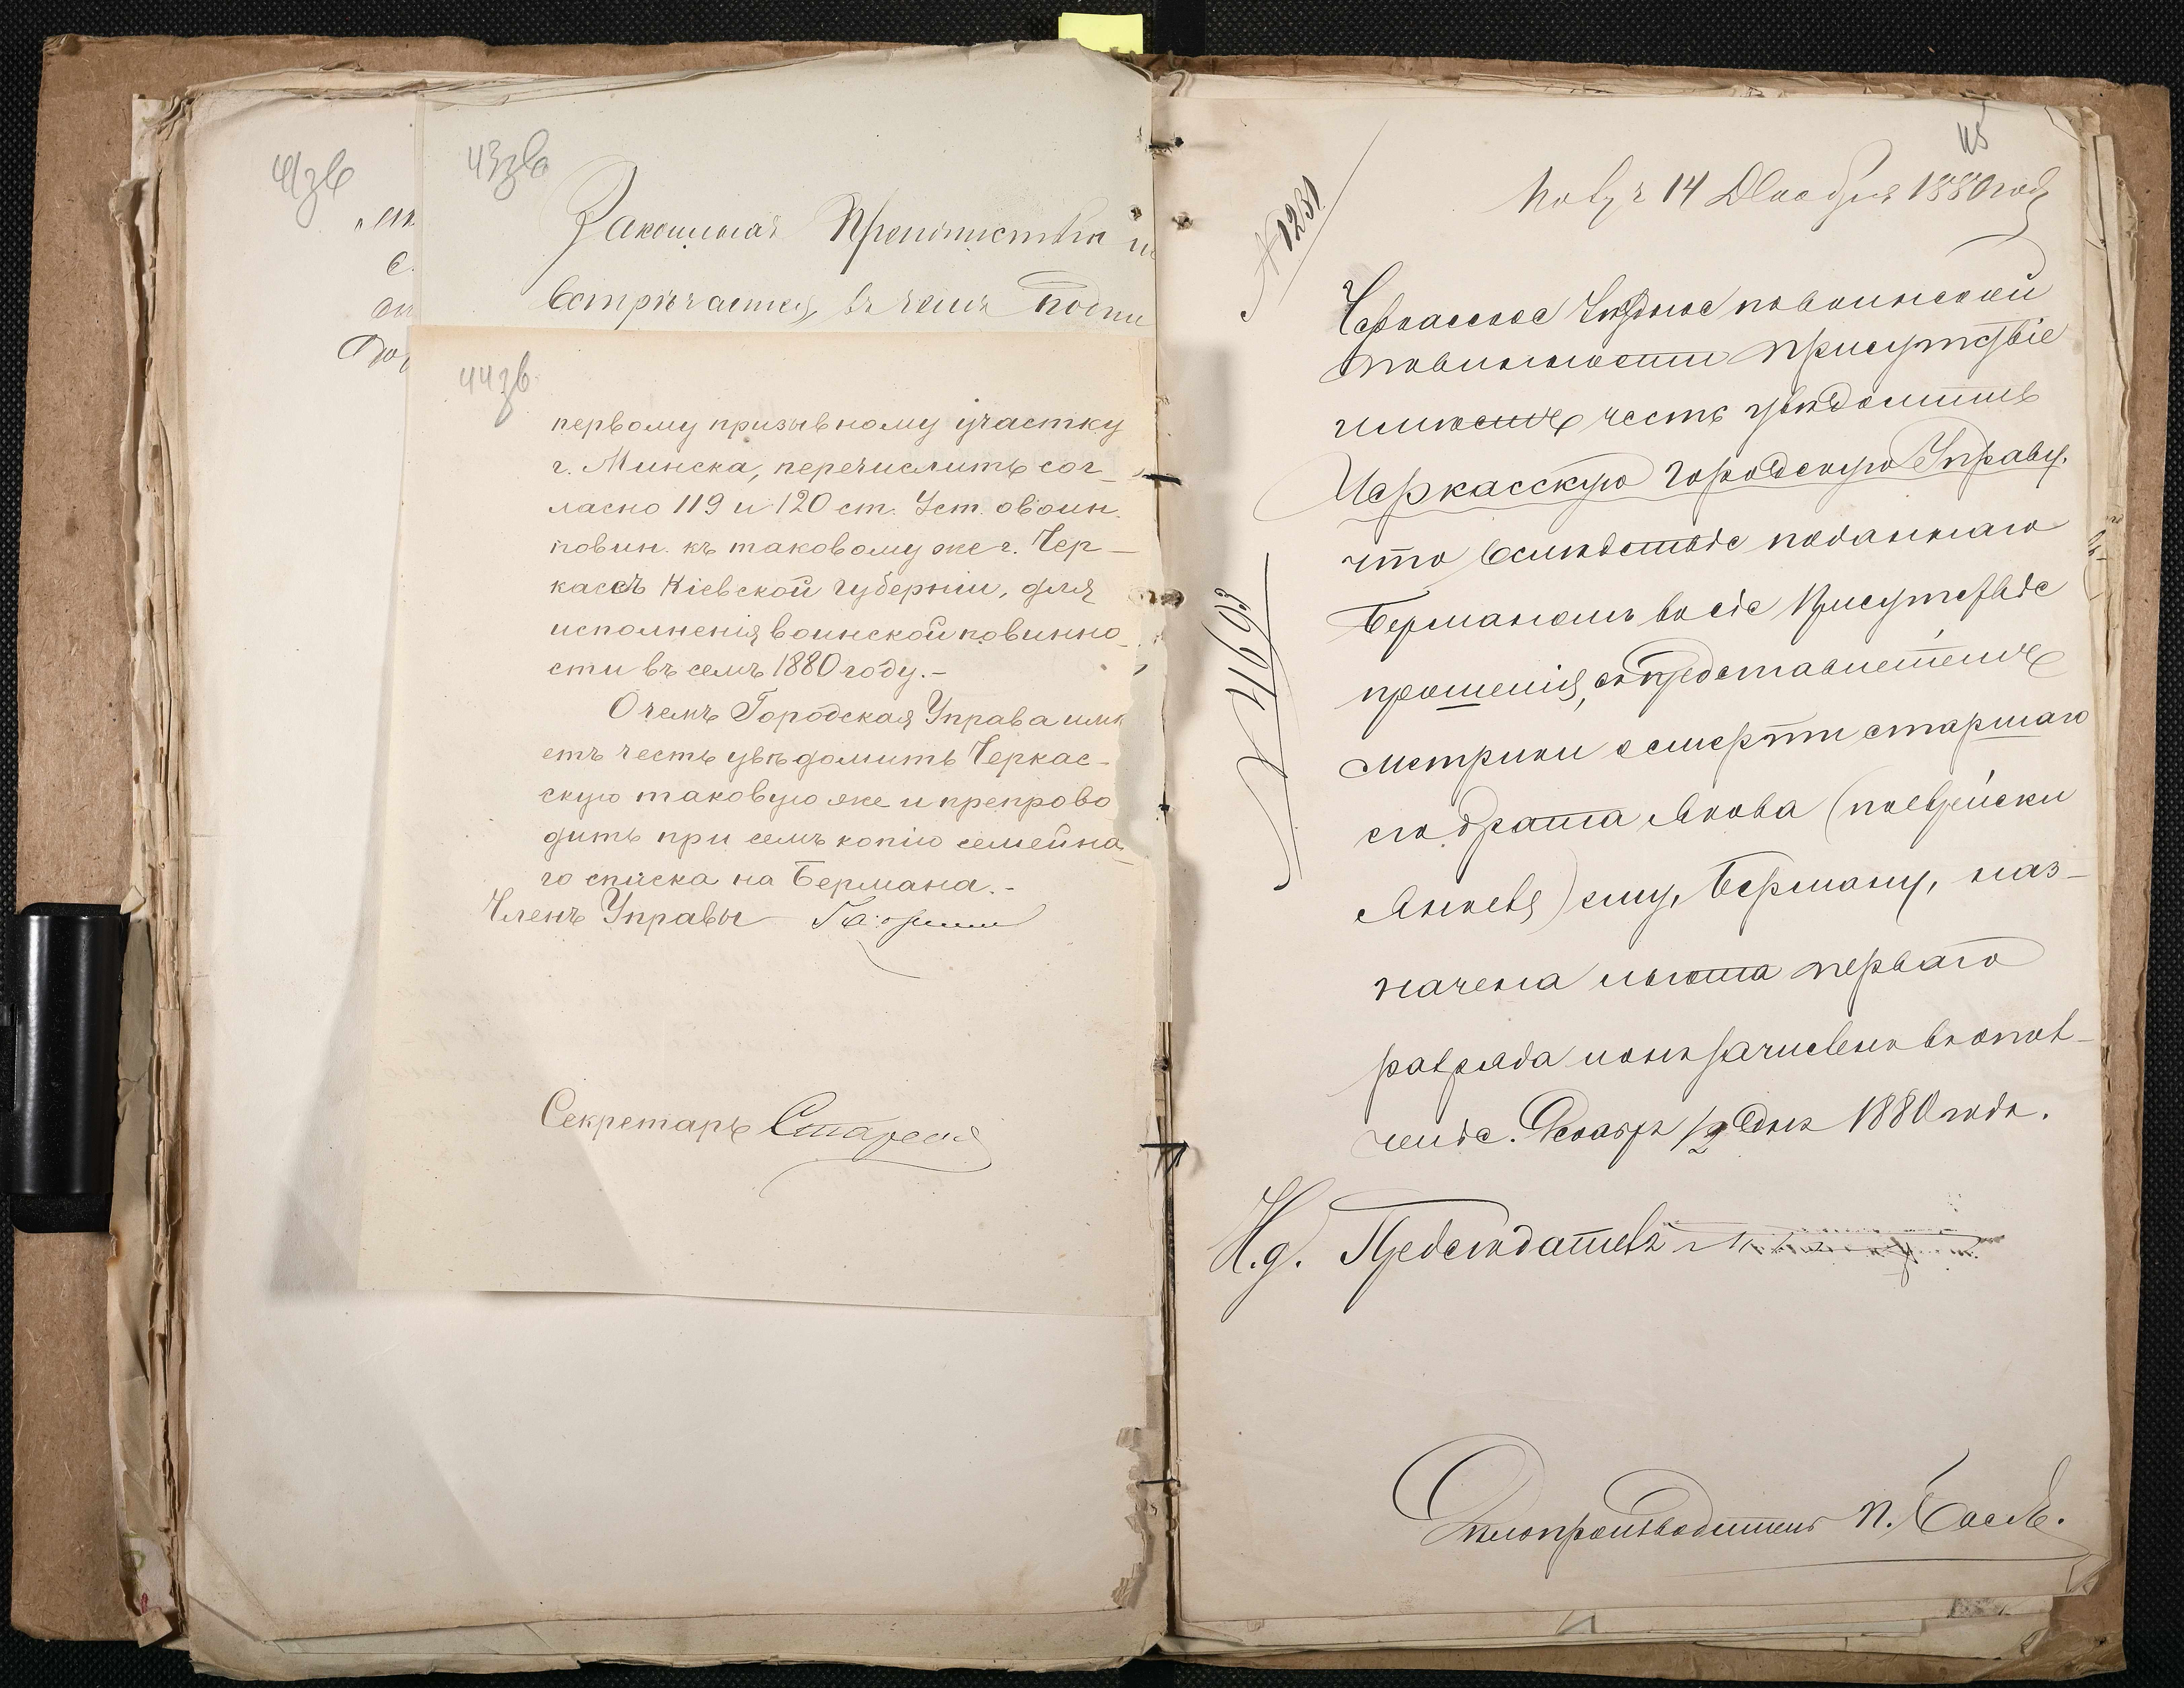 41зв
43зв
Законнаго Препятствія
встрѣчается, въ чемъ
44зв.
первому призывному участку
г. Минска, перечислить сог-
ласно 119 и 120 ст. Уст. о воин.
повин. къ таковому же г. Чер-
кассъ Кіевской губерніи, для
исполненія воинской повинно-
сти въ семъ 1880 году.-
О чемъ Городская Управа имѣ
етъ честь увѣдомить Черкас-
скую таковую же и препрово
дить при семъ копію семейна-
го списка на Бермана.-
Членъ Управы
Секретарь
45
Получ 14 Декабря 1880 года
№ 1231
Черкасское Уѣздное по воинской
повинности присутствіе
имѣетъ честь увѣдомить
Черкасскую Городскую Управу,
что вслѣдствіе поданнаго
Берманомъ въ сіе Присутствіе
прошенія, съ представленіемъ
метрики о смерти старшаго
его брата Якова (по еврейски
Янкеля) ему, Берману, наз-
начена льгота перваго
разряда и онъ зачисленъ въ опол-
ченіе. Декабря 12 дня 1880 года.
№ 4693
И.д. Предсѣдателя
Дѣлопроизводитель П.